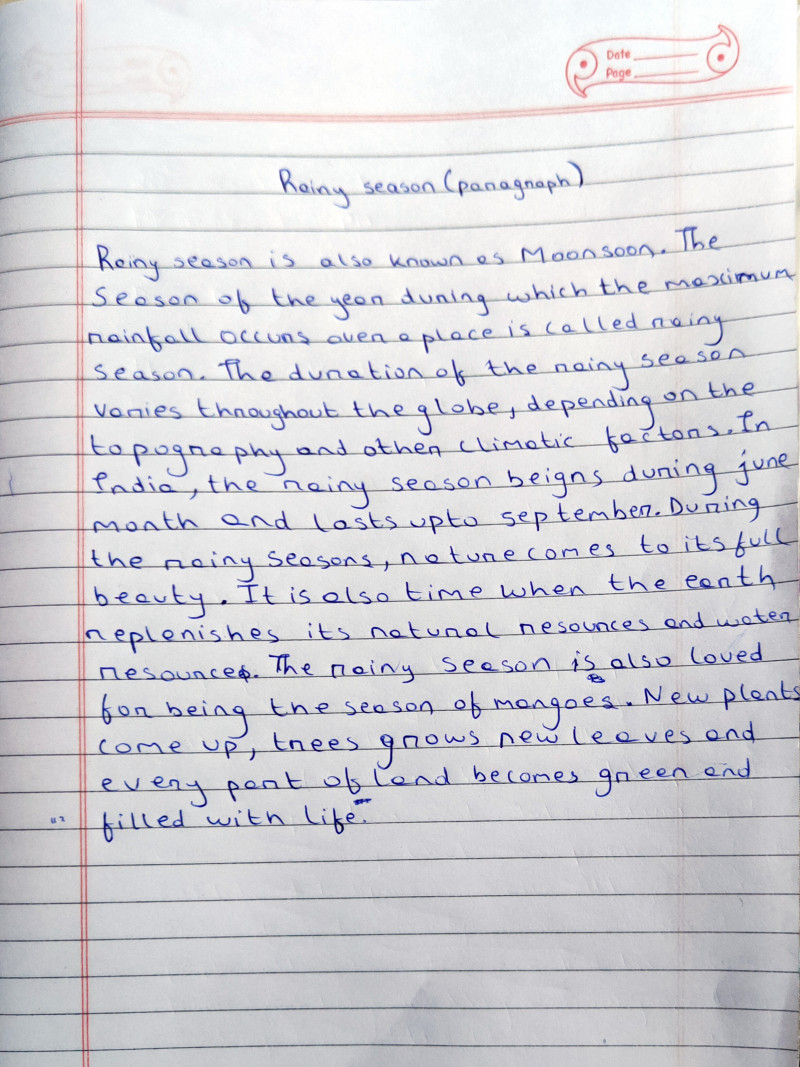 Date
Page
Rainy season (paragraph)
Rainy season is also known as Moonsoon. The
Season of the year during which the maximum
rainfall occurs over a place is called rainy
season. The duration of the rainy season
varies throughout the globe, depending on the
topography and other climatic factors. In
India, the rainy season beigns during june
month and lasts upto september. During
the rainy seasons, nature comes to its full
beauty. It is also time when the earth
replenishes its natural resources and water
resources. The rainy season is also loved
for being the season of mangoes. New plants
come up, trees grows new leaves and
every part of land becomes green and
filled with life.